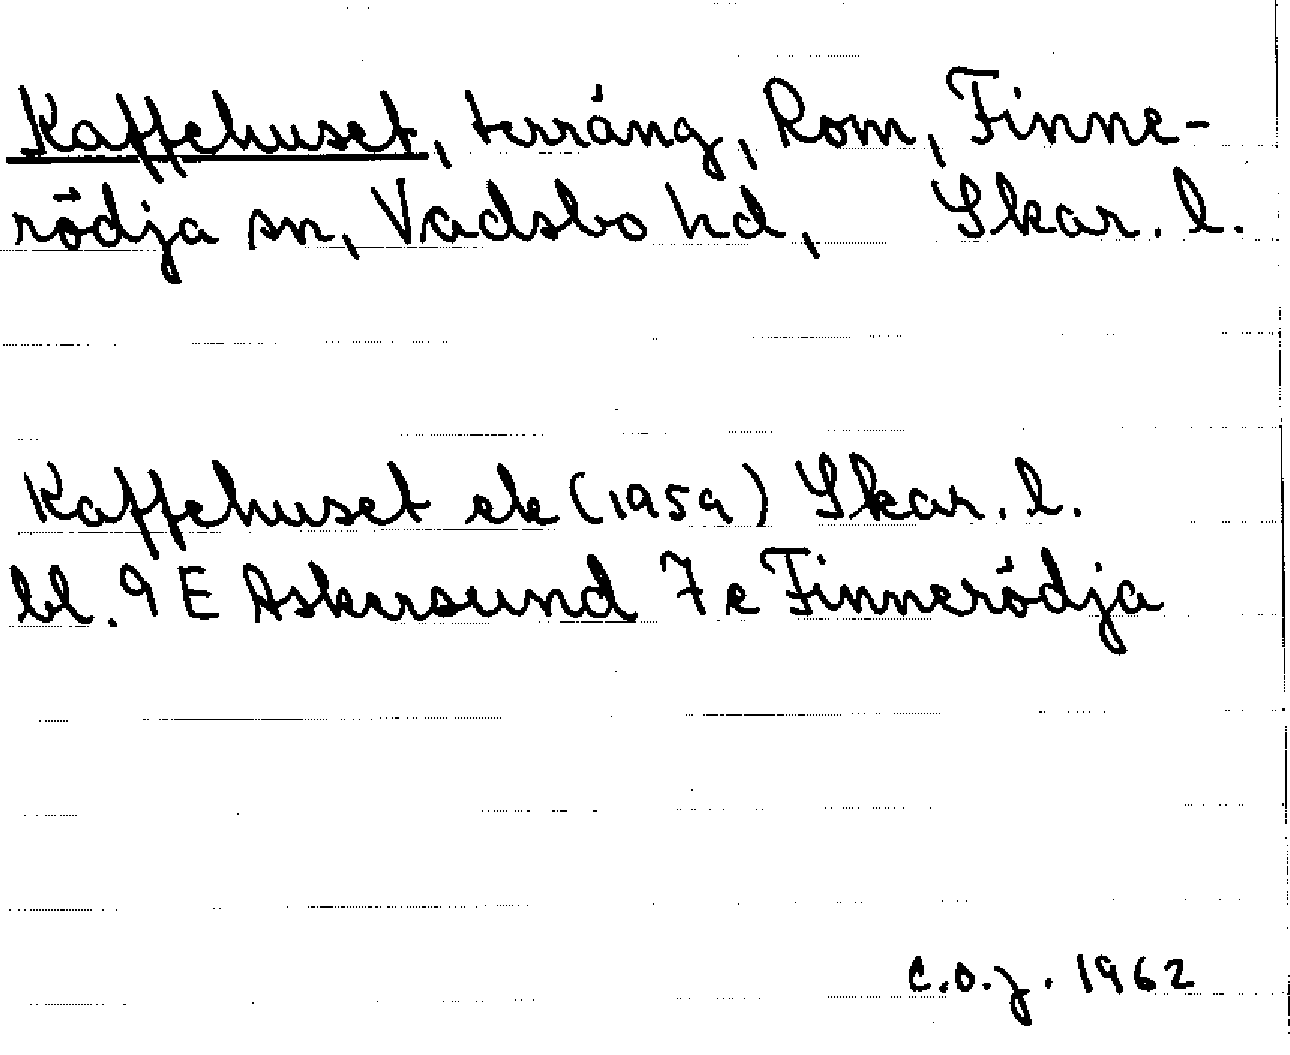 Kaffehuset, terräng, Rom, Finne-
rödja sn, Vadsbo hd, Skar. l.
Kaffehuset ek (1959) Skar. l.
bl. 9 E Askersund 7 e Finnerödja
C.O.J. 1962